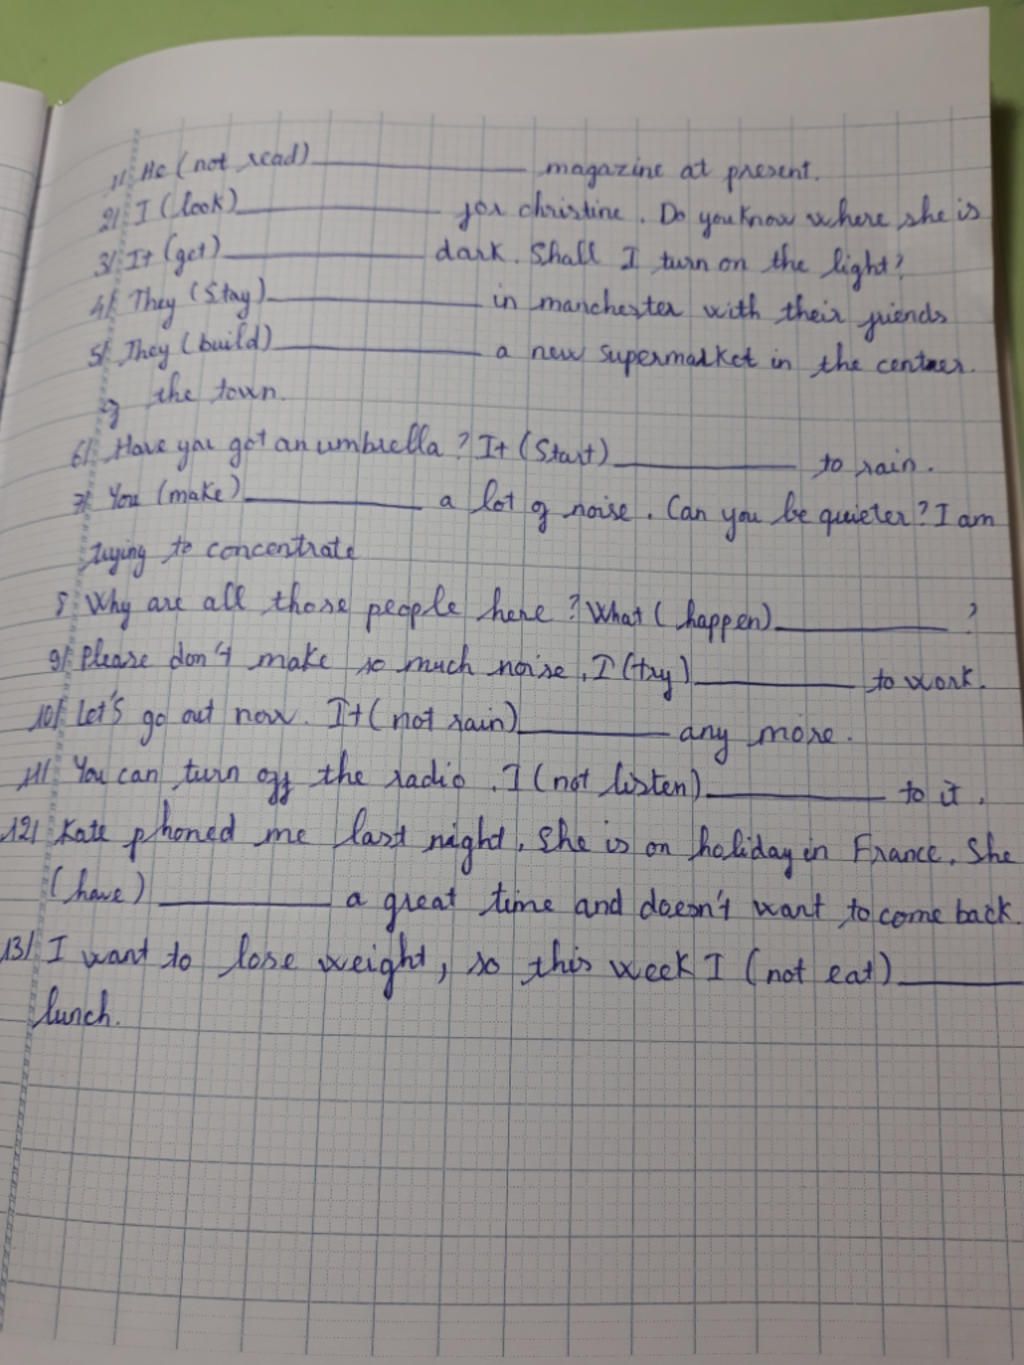 1/ He (not read)_______ magazine at present.
2/ I (look)_______ for christine. Do you know where she is
3/ It (get)_______ dark. Shall I turn on the light?
4/ They (Stay)_______ in manchester with their friends
5/ They (build)_______ a new supermarket in the center
of the town.
6/ Have you got an umbrella? It (Start)_______ to rain.
7/ You (make)_______ a lot of noise. Can you be quieter? I am
trying to concentrate
8 Why are all those people here? What (happen)_______?
9/ Please don't make so much noise. I (try)_______ to work.
10/ Let's go out now. It (not rain)_______ any more.
11/ You can turn off the radio. I (not listen)_______ to it.
12/ Kate phoned me last night. She is on holiday in France. She
(have)_______ a great time and doesn't want to come back.
13/ I want to lose weight, so this week I (not eat)_______
lunch.